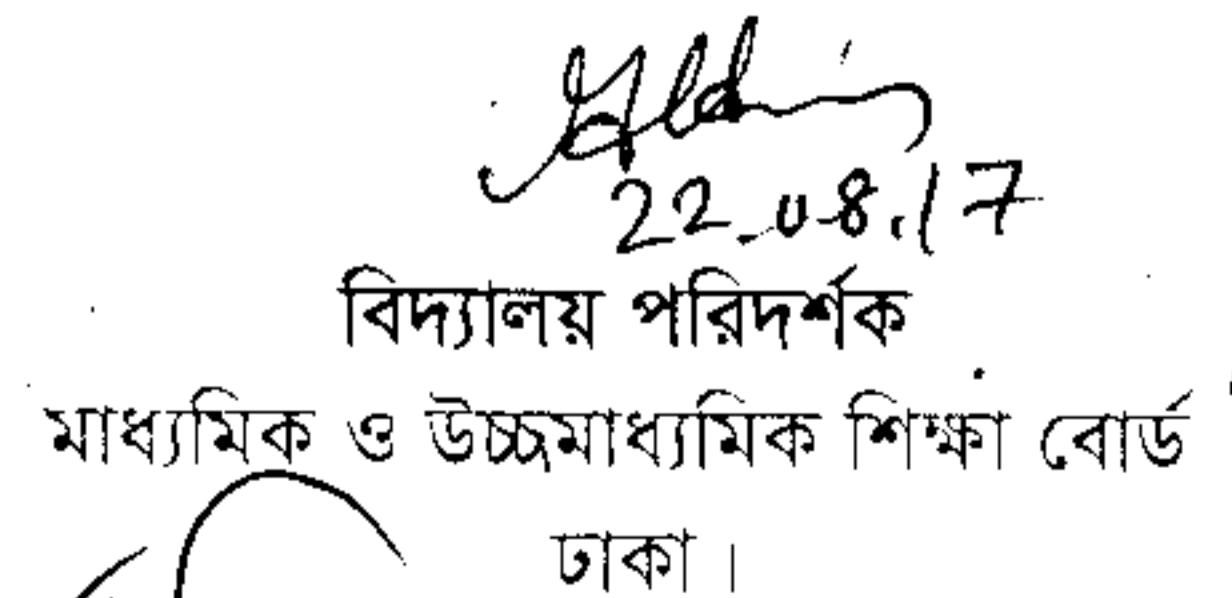 22.08.17
বিদ্যালয় পরিদর্শক
মাধ্যমিক ও উচ্চমাধ্যমিক শিক্ষা বোর্ড
ঢাকা।